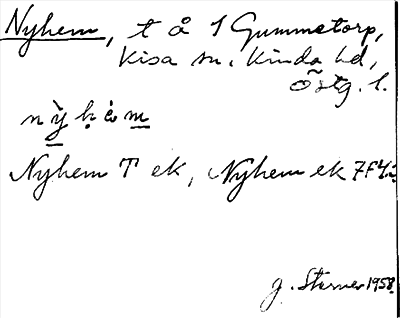 Nyhem, t å 1 Gummetorp,
Kisa sn, Kinda hd,
Östg. l.
nỳhèm
Nyhem T ek, Nyhem ek 7F4
G. Sterner 1958